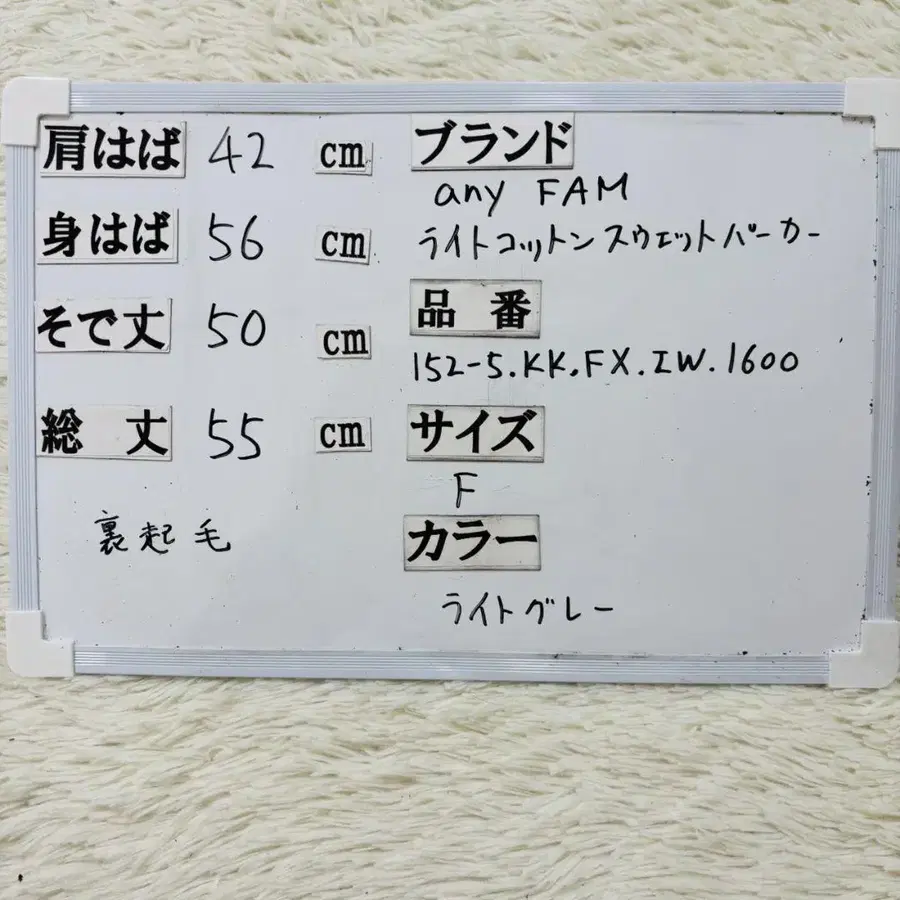 肩はば 42 cm
身はば 56 cm
そで丈 50 cm
総 丈 55 cm
裏起毛
ブランド
any FAM
ライトコットンスウェットパーカー
品 番
152-5.KK.FX.IW.1600
サイズ
F
カラー
ライトグレー